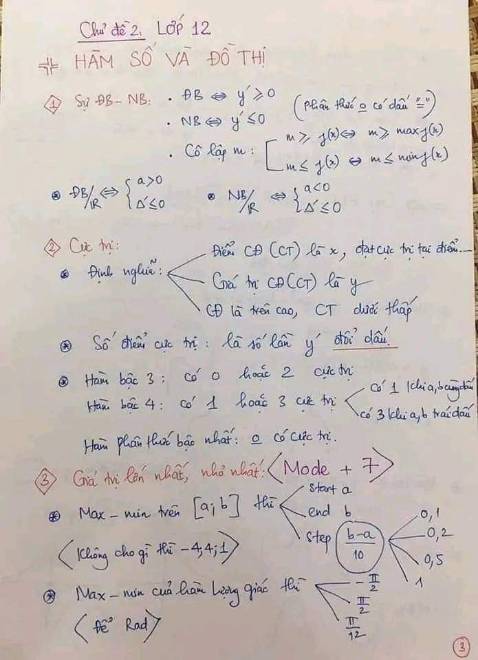 Chủ đề 2. LỚP 12
HÀM SỐ VÀ ĐỒ THỊ
1 Sự ĐB - NB: • ĐB ⇔ y' ≥ 0
(phân thức o có dấu "=")
• NB ⇔ y' ≤ 0
• Cô lập m: [ m ≥ f(x) ⇔ m ≥ max f(x)
m ≤ f(x) ⇔ m ≤ min f(x)
⊛ ĐB/R ⇔ { a>0 ⊛ NB/R ⇔ { a<0
Δ' ≤ 0 Δ' ≤ 0
2 Cực trị:
Điểm CĐ (CT) là x, đạt cực trị tại điểm...
⊛ Định nghĩa: Giá trị CĐ (CT) là y
CĐ là trên cao, CT dưới thấp
⊛ Số điểm cực trị: là số lần y' đổi dấu.
⊛ Hàm bậc 3: có 0 hoặc 2 cực trị
có 1 khi a, b cùng dấu
Hàm bậc 4: có 1 hoặc 3 cực trị
có 3 khi a, b trái dấu
Hàm phân thức bậc nhất: o có cực trị.
3 Giá trị lớn nhất, nhỏ nhất: <Mode + 7>
start a
⊛ Max - min trên [a; b] thì end b
step b-a/10
0,1
0,2
0,5
1
<Không cho gì thì -4; 4; 1>
⊛ Max - min của hàm lượng giác thì
-π/2
π/2
π/12
<Để Rad>
3